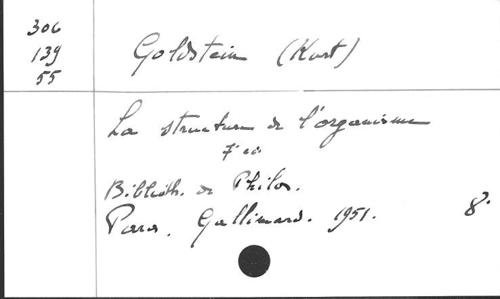 306
139
55
Goldstein (Kurt)
La structure de l'organisme
7e éd.
Biblioth. de Philos.
Paris. Gallimard. 1951. 8°